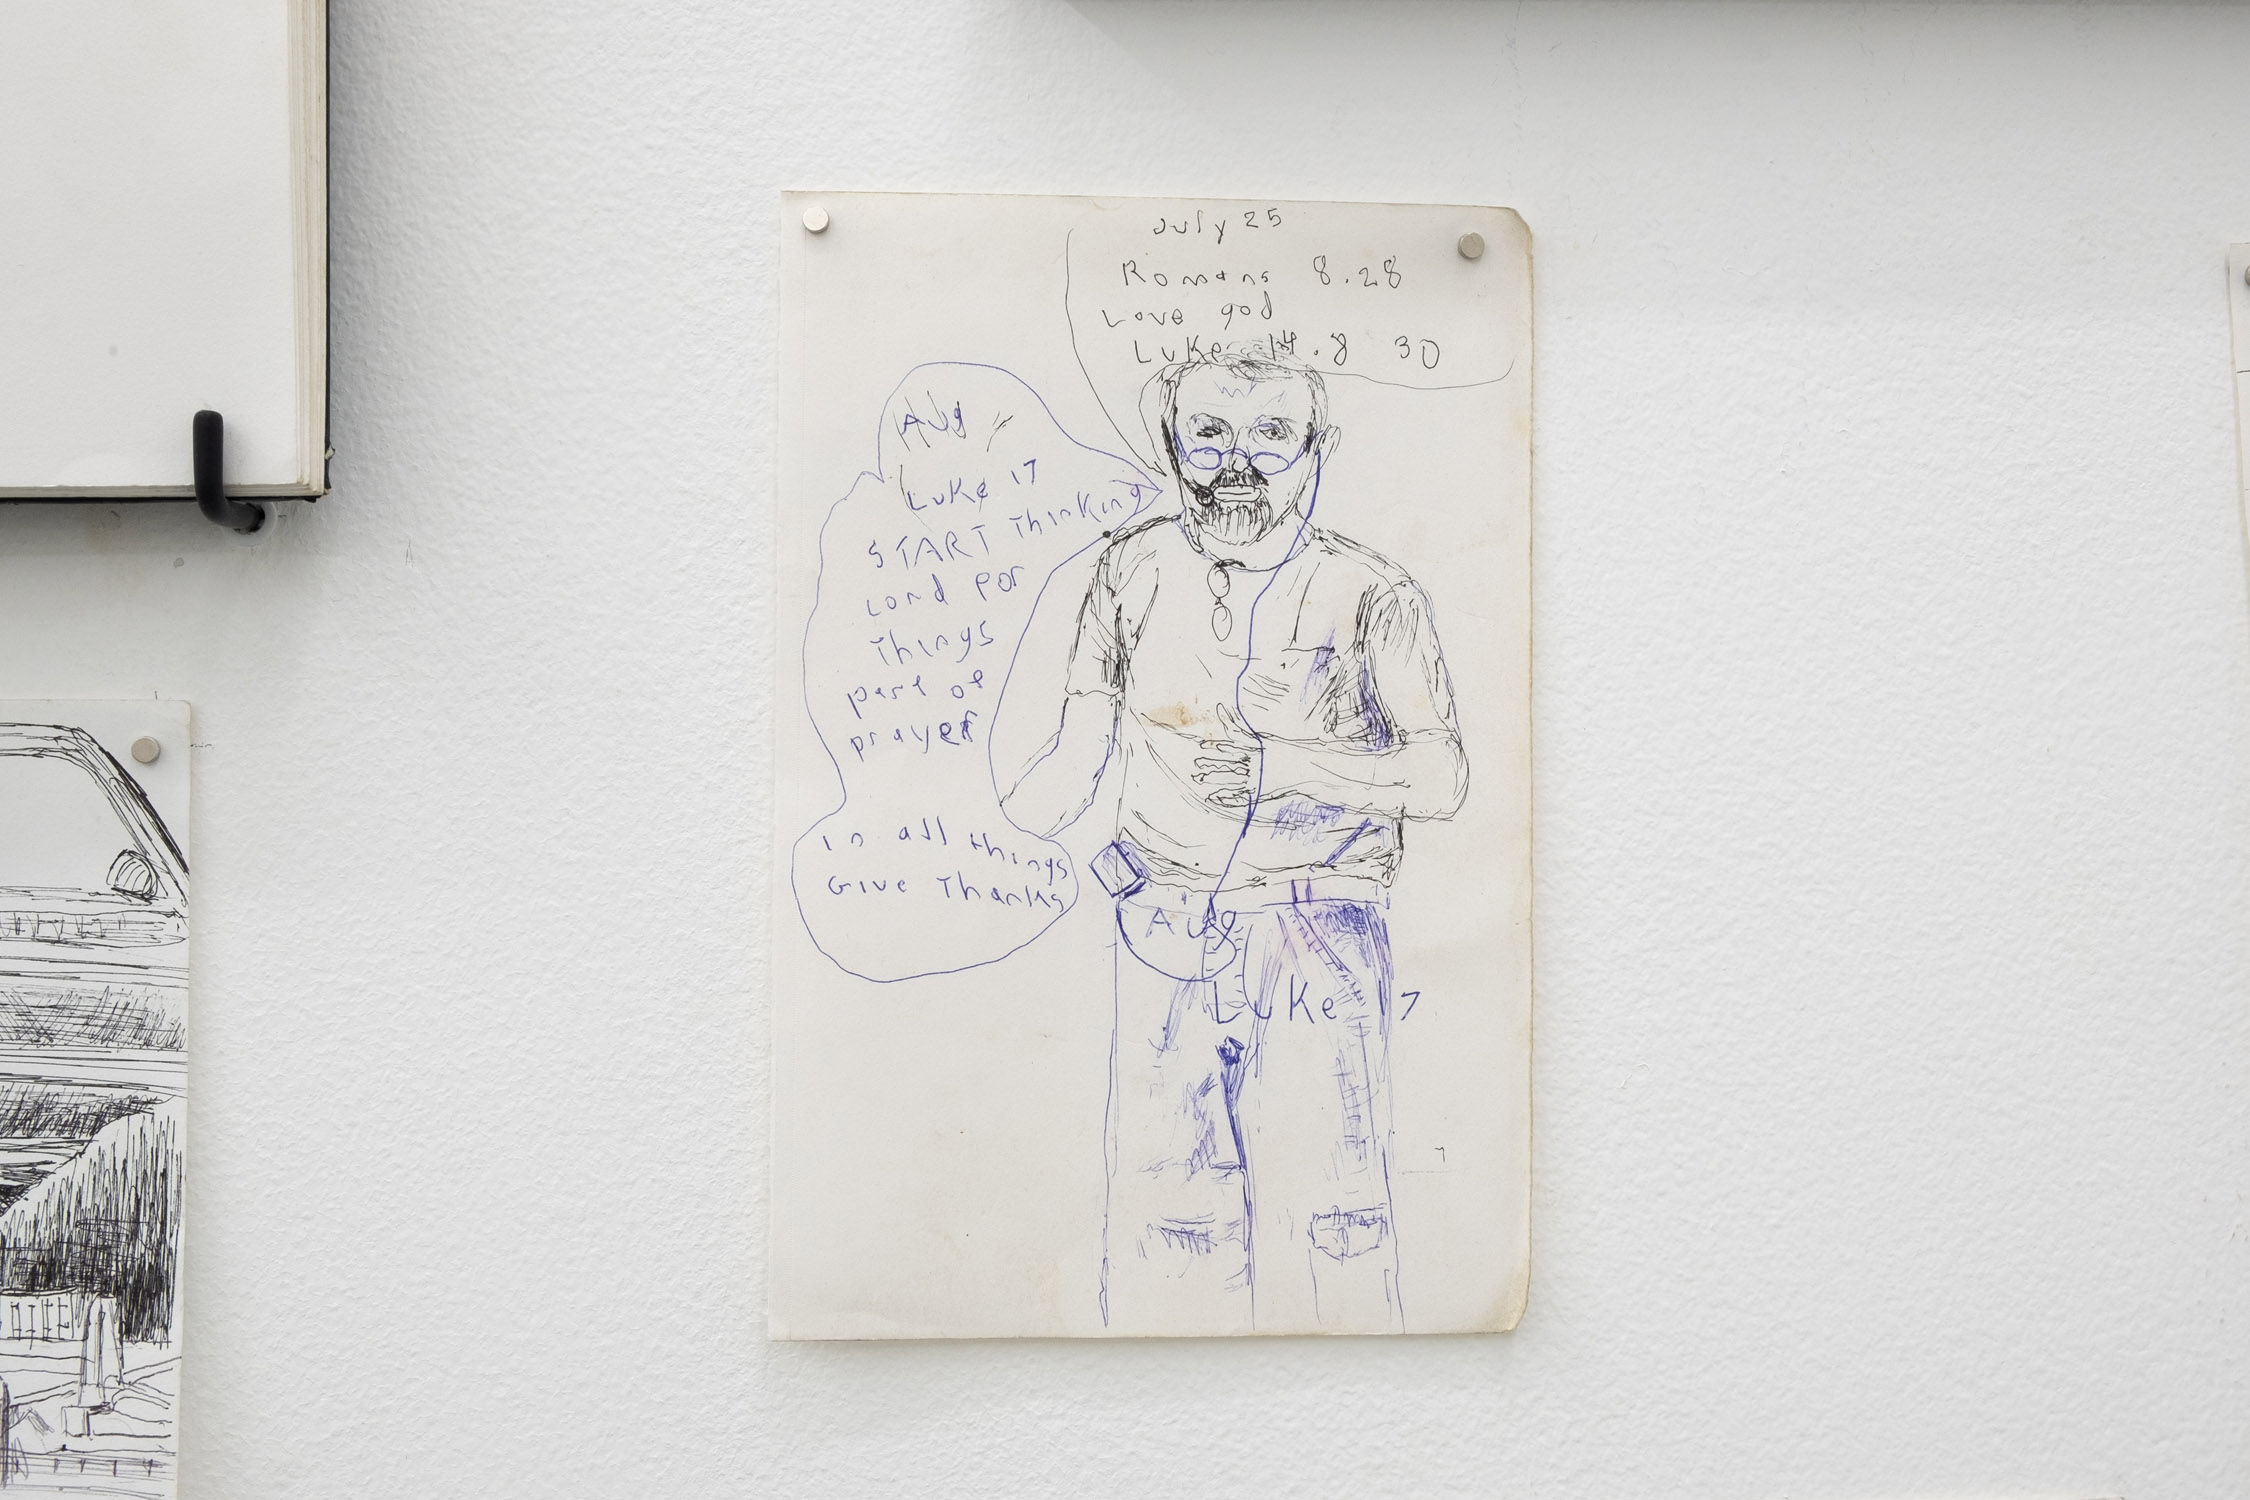 July 25
Romans 8.28
Love god
Luke 14.8 30
Aug
Luke 17
START Thinking
Lord For
Things
part of
prayer
In all things
Give Thanks
Aug
Luke 17